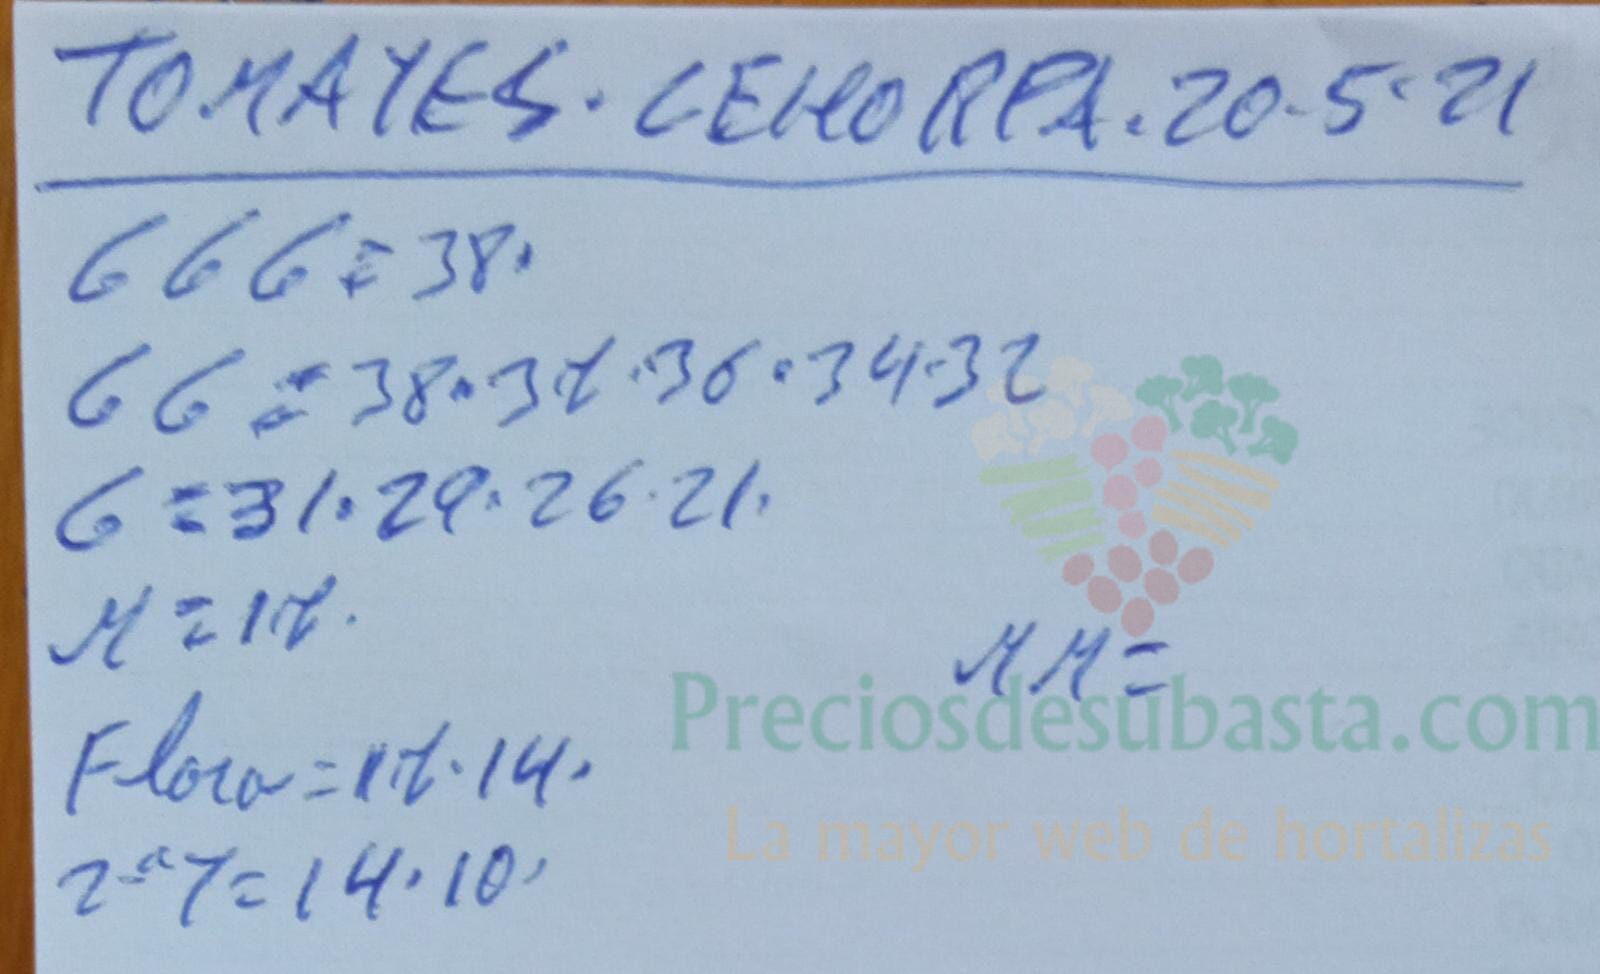 TOMATES. CEHORPA. 20-5-21
GGG = 38.
GG = 38.37.36.34.32
G = 31.29.26.21.
M = 17.
MM =
Flora = 17.14.
2ªT = 14.10.
Preciosdesubasta.com
La mayor web de hortalizas